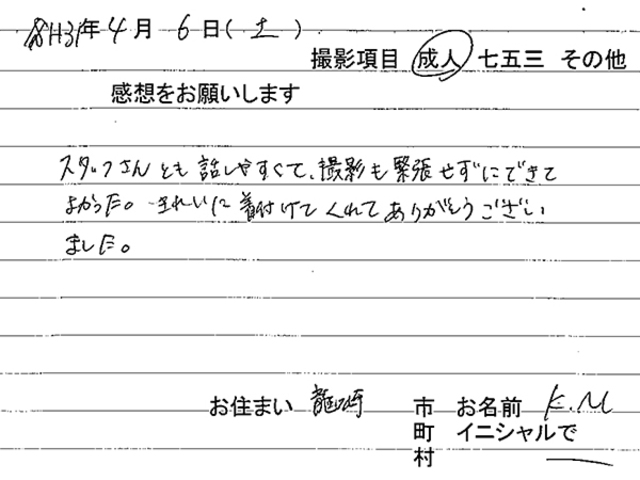 H31年4月6日(土)
撮影項目 成人 七五三 その他
感想をお願いします
スタッフさんとも話しやすくて、撮影も緊張せずにできて
よかった。きれいに着付けてくれてありがとうござい
ました。
お住まい 龍ヶ崎 市 お名前 K.M
町 イニシャルで
村